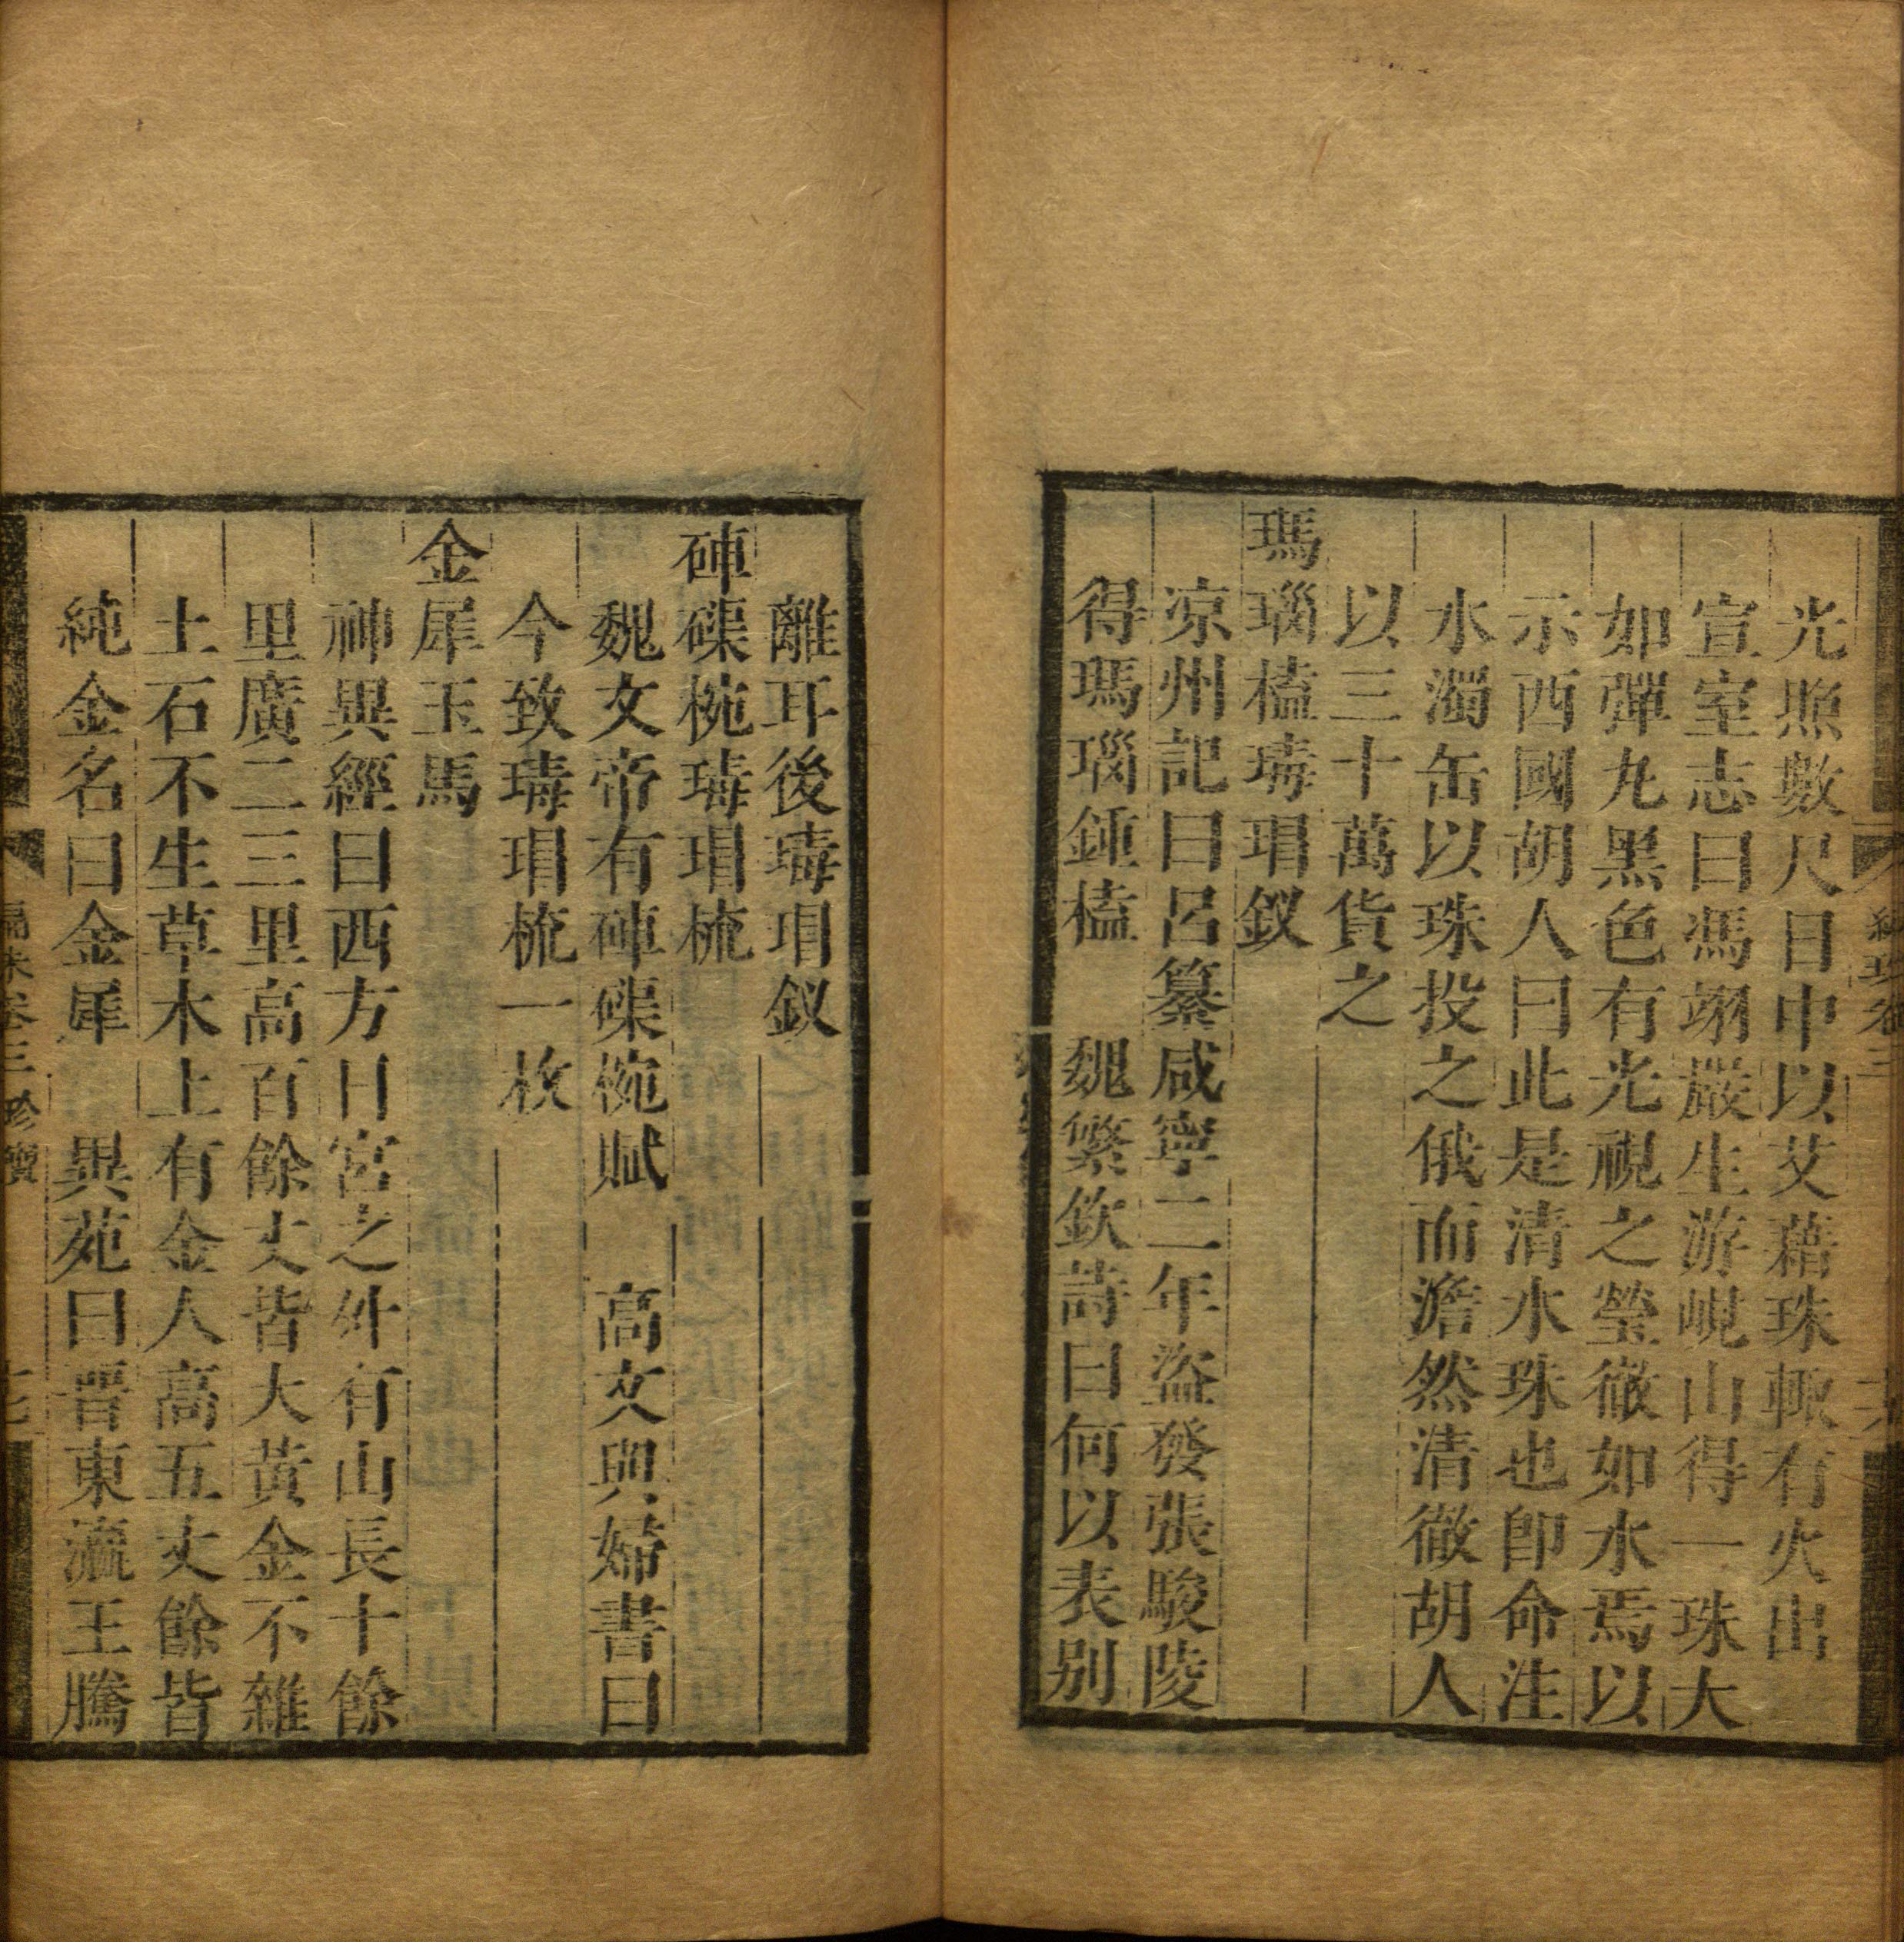 光照數尺日中以艾藉珠輒有火出
宣室志曰馮翊嚴生游峴山得一珠大
如彈丸黑色有光視之瑩徹如水焉以
示西國胡人曰此是清水珠也卽命注
水濁缶以珠投之俄而澹然清徹胡人
以三十萬貨之
瑪瑙榼瑇瑁釵
凉州記曰呂纂咸寧二年盜發張駿陵
得瑪瑙鍾榼　魏繁欽詩曰何以表别
離耳後瑇瑁釵
硨磲椀瑇瑁梳
魏文帝有硨磲椀賦　高文與婦書曰
今致瑇瑁梳一枚
金犀玉馬
神異經曰西方日宮之外有山長十餘
里廣二三里高百餘丈皆大黃金不雜
土石不生草木上有金人高五丈餘皆
純金名曰金犀　異苑曰晋東瀛王騰
編珠卷三　珍寶　十七